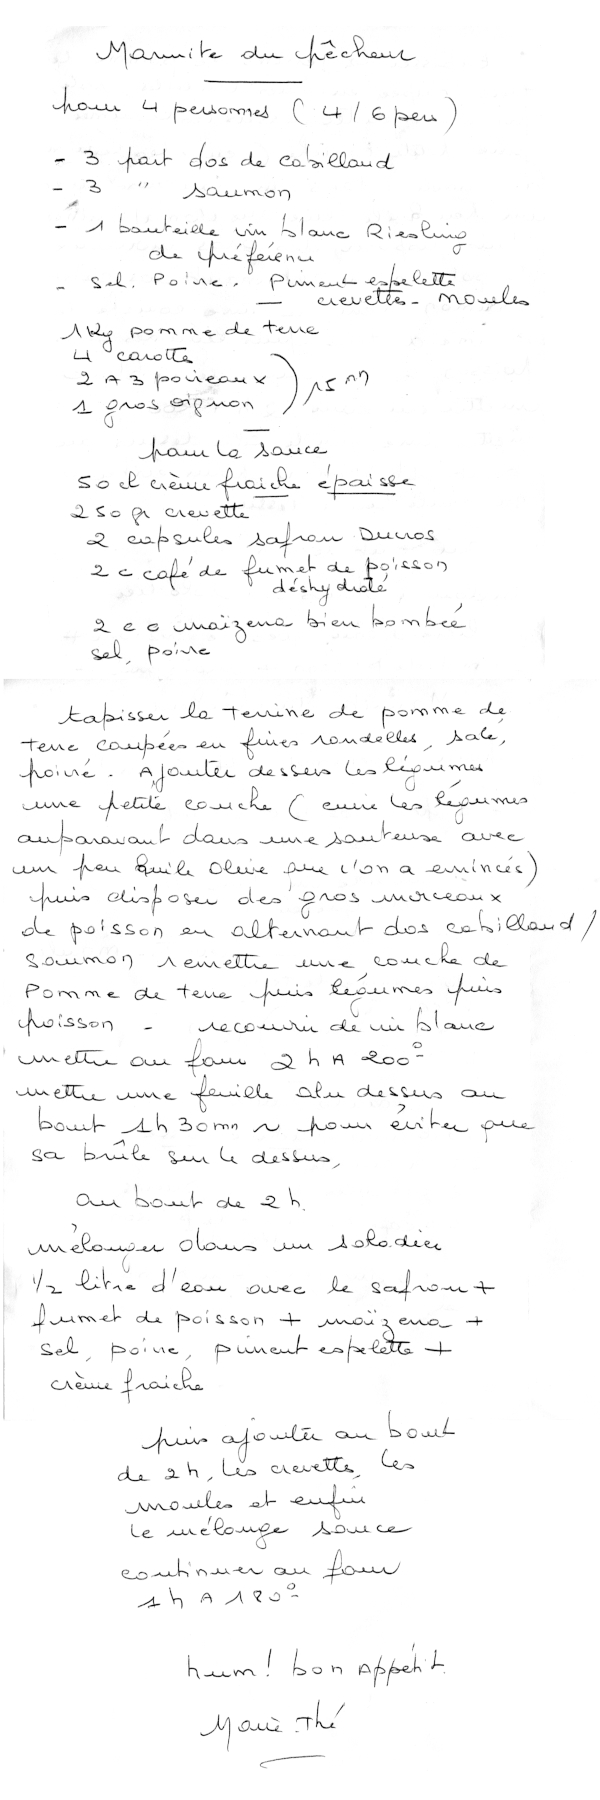 Marmite du pêcheur
pour 4 personnes ( 4 / 6 pers )
- 3 part dos de cabillaud
- 3 " saumon
- 1 bouteille vin blanc Riesling
de préférence
- sel. Poivre. Piment espelette
- crevettes - moules
1 Kg pomme de terre
4 carotte
2 A 3 poireaux
1 gros oignon
) 15 mn
pour la sauce
50 cl crème fraiche épaisse
250 gr crevette
2 capsules safran Ducros
2 c café de fumet de poisson
déshydraté
2 c c maïzena bien bombée
sel, poivre
tapisser la terrine de pomme de
terre coupées en fines rondelles, salé,
poivré. Ajouter dessus les légumes
une petite couche ( cuire les légumes
auparavant dans une sauteuse avec
un peu huile olive que l'on a emincés)
puis disposer des gros morceaux
de poisson en alternant dos cabillaud /
Saumon remettre une couche de
Pomme de terre puis légumes puis
poisson - recouvrir de vin blanc
mettre au four 2 h A 200°
mettre une feuille alu dessus au
bout 1h 30mn pour éviter que
sa brûle sur le dessus,
au bout de 2 h.
mélanger dans un saladier
1/2 litre d'eau avec le safran +
fumet de poisson + maïzena +
sel, poivre, piment espelette +
crème fraiche
puis ajouter au bout
de 2 h, les crevettes, les
moules et enfin
le mélange sauce
continuer au four
1 h A 180°
hum! bon Appétit.
Marie-Thé